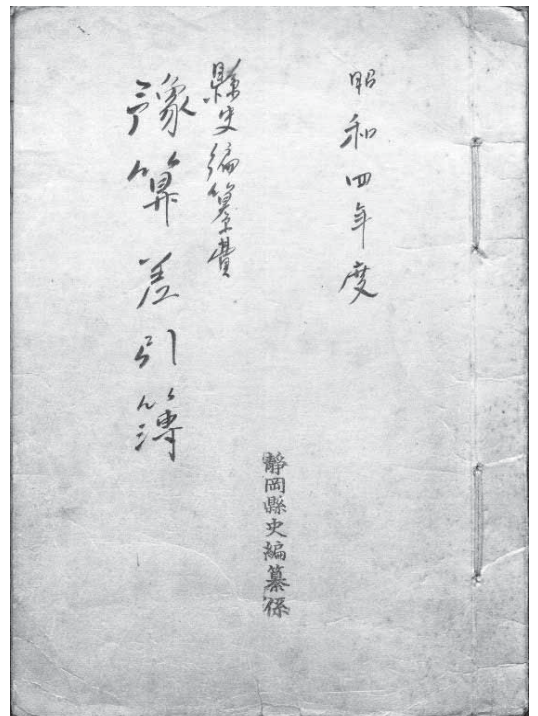 昭和四年度
縣史編纂費
豫算差引簿
靜岡縣史編纂係